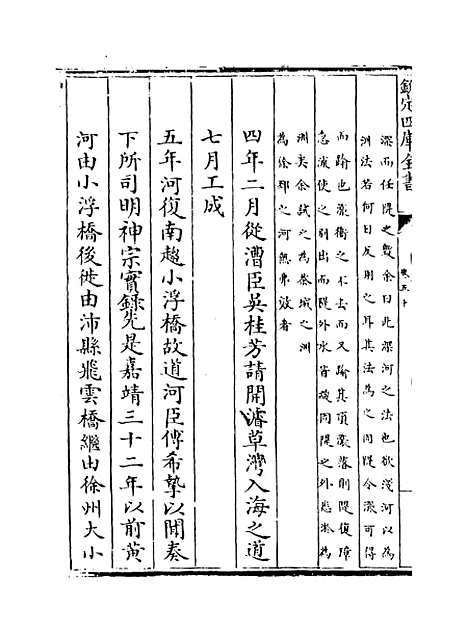 欽定四庫全書
卷五十
深而任隄之毀余曰此深河之法也欲淺河以為
洲法若何曰反用之耳其法為之固隄令漲可得
而踰也漲衝之不去而又踰其頂漲落則隄復障
急流使之别出而隄外水皆緩固隄之外悉淤為
洲矣余試之為茶城之洲
為徐邳之河無弗效者
四年二月從漕臣吳桂芳請開濬草灣入海之道
七月工成
五年河復南趨小浮橋故道河臣傅希摯以聞奏
下所司明神宗實録先是嘉靖三十二年以前黄
河由小浮橋後徙由沛縣飛雲橋繼由徐州大小